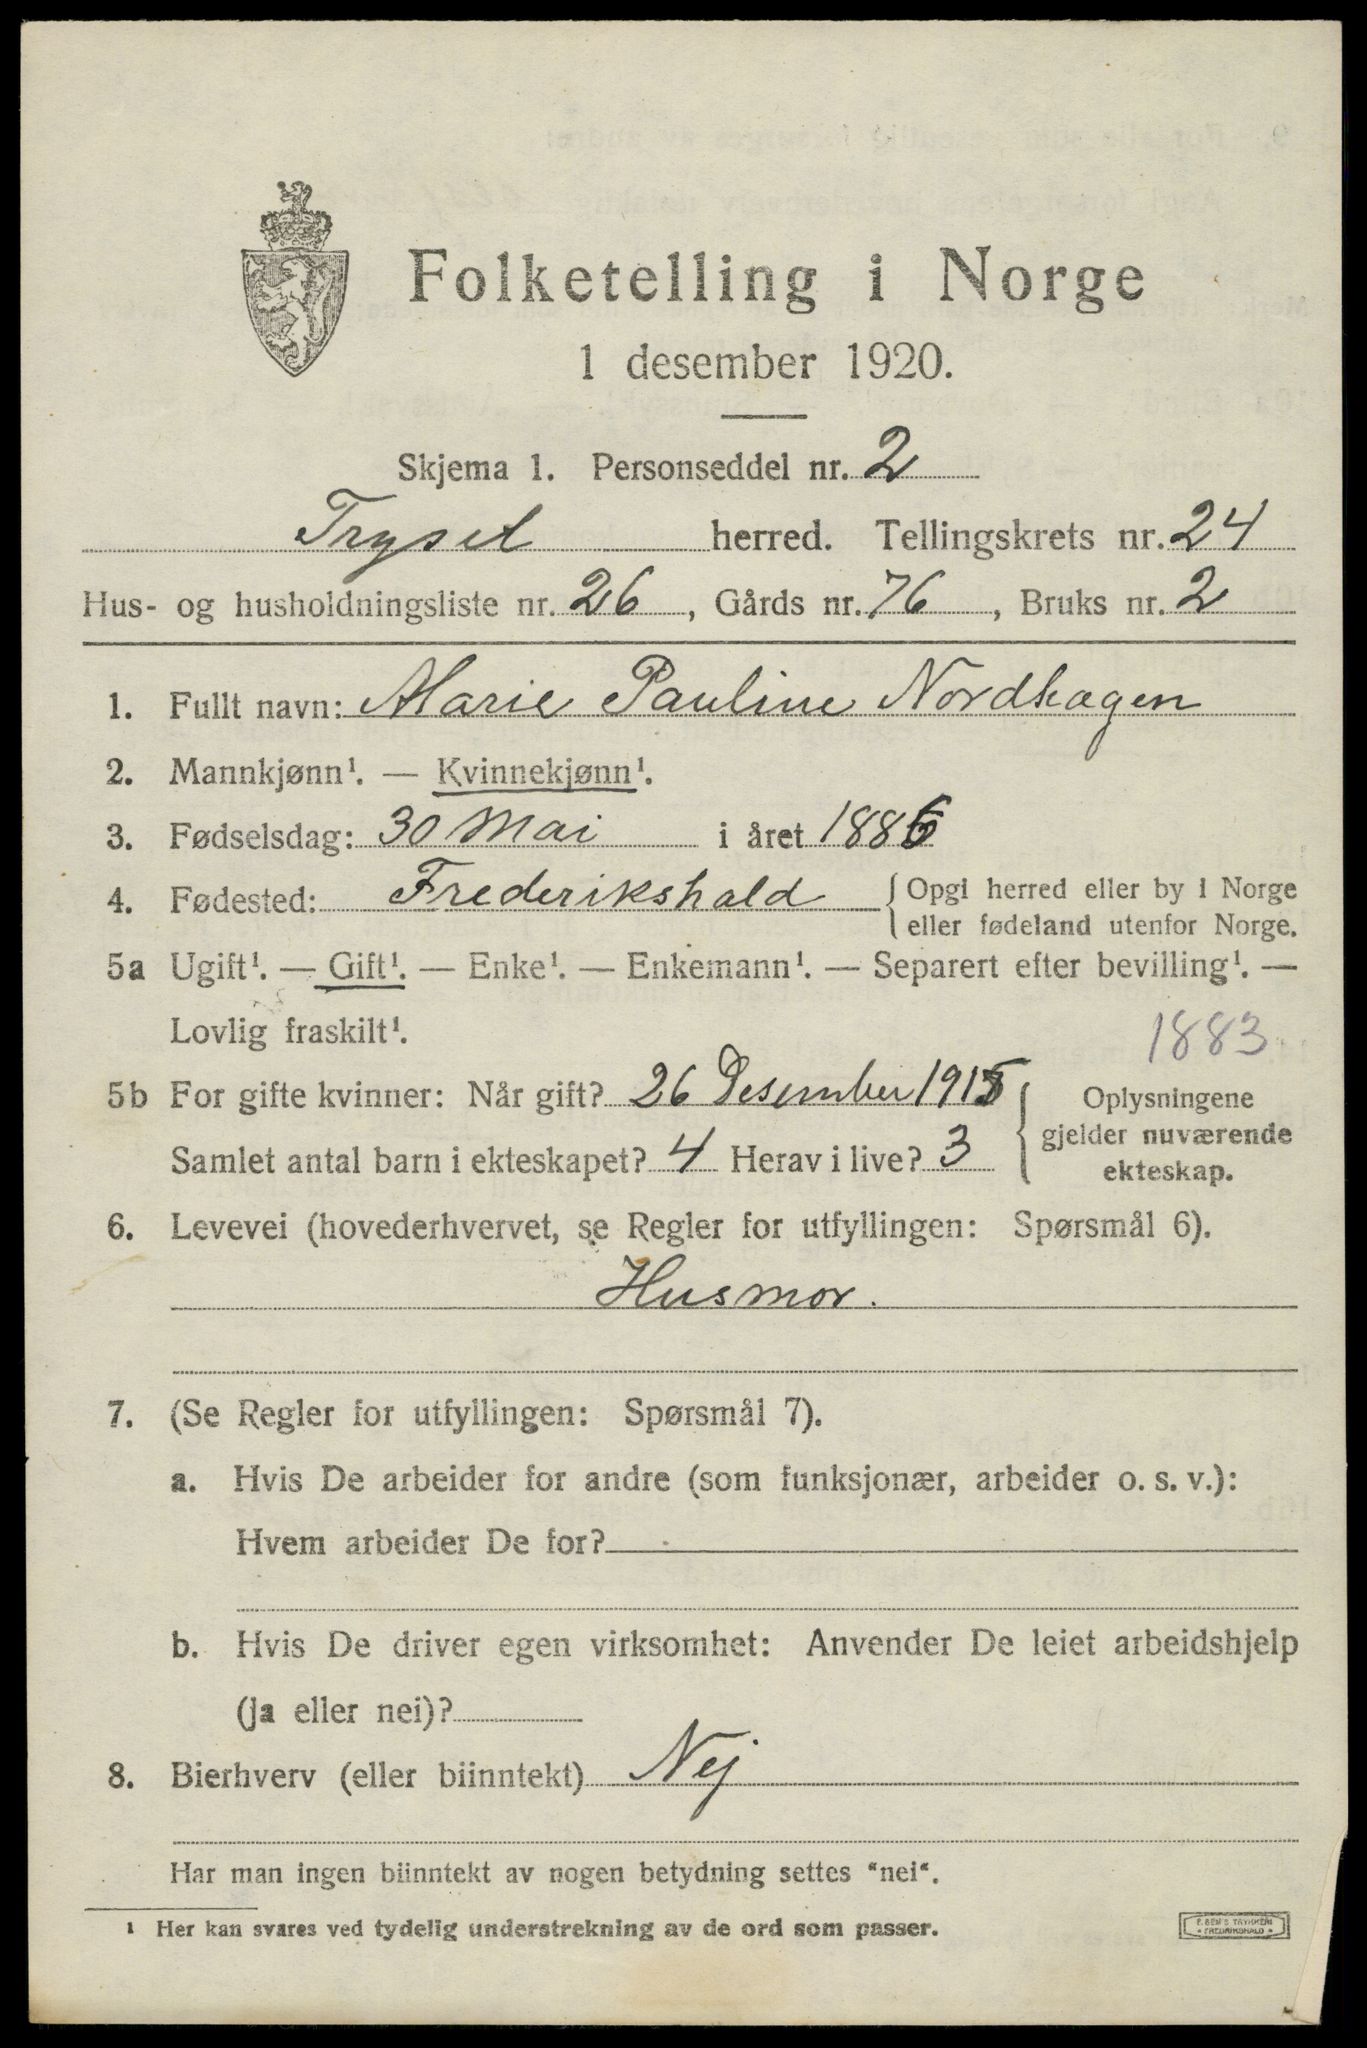 Folketelling i Norge
1 desember 1920.
Skjema 1. Personseddel nr. 2
Trysil herred. Tellingskrets nr. 24
Hus- og husholdningsliste nr. 26, Gårds nr. 76, Bruks nr. 2
1. Fullt navn: Marie Pauline Nordhagen
2. Mannkjønn¹. — Kvinnekjønn¹.
3. Fødselsdag: 30 Mai i året 1886
4. Fødested: Frederikshald { Opgi herred eller by i Norge
eller fødeland utenfor Norge.
5a Ugift¹. — Gift¹. — Enke¹. — Enkemann¹. — Separert efter bevilling¹. —
Lovlig fraskilt¹.
1883
5b For gifte kvinner: Når gift? 26 Desember 1915 { Oplysningene
gjelder nuværende
Samlet antal barn i ekteskapet? 4 Herav i live? 3
ekteskap.
6. Levevei (hovederhvervet, se Regler for utfyllingen: Spørsmål 6).
Husmor.
7. (Se Regler for utfyllingen: Spørsmål 7).
a. Hvis De arbeider for andre (som funksjonær, arbeider o. s. v.):
Hvem arbeider De for?
b. Hvis De driver egen virksomhet: Anvender De leiet arbeidshjelp
(ja eller nei)?
8. Bierhverv (eller biinntekt) Nej
Har man ingen biinntekt av nogen betydning settes "nei".
¹ Her kan svares ved tydelig understrekning av de ord som passer.
E. SEM'S TRYKKERI
FREDRIKSHALD